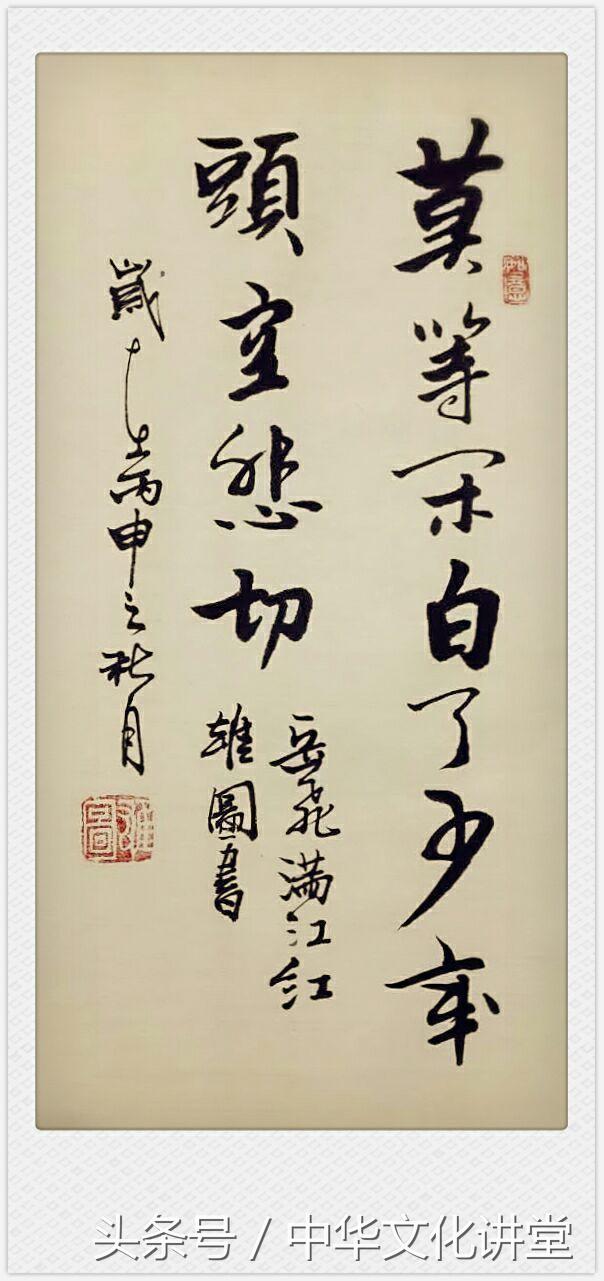 莫等闲白了少年
頭空悲切
岳飛满江红
雄圖書
歲在丙申之秋月
头条号 / 中华文化讲堂